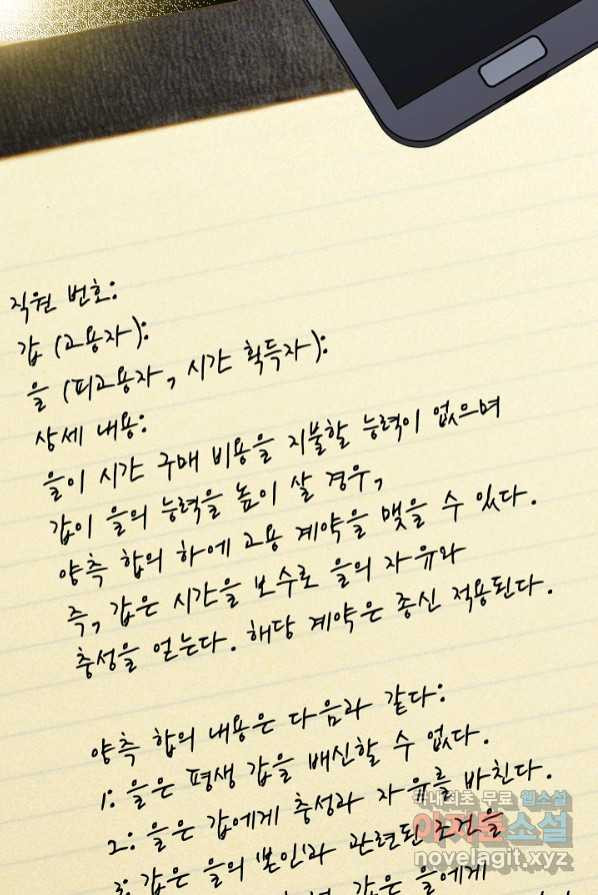 직원 번호:
갑 (고용자):
을 (피고용자, 시간 획득자):
상세 내용:
을이 시간 구매 비용을 지불할 능력이 없으며
갑이 을의 능력을 높이 살 경우,
양측 합의 하에 고용 계약을 맺을 수 있다.
즉, 갑은 시간을 보수로 을의 자유와
충성을 얻는다. 해당 계약은 종신 적용된다.
양측 합의 내용은 다음과 같다:
1: 을은 평생 갑을 배신할 수 없다.
2: 을은 갑에게 충성과 자유를 바친다.
3: 갑은 을의 '본인'과 관련된 조건을
갑은 을에게
#내최초 무료 웹소설
아지툰소설
novelagit.xyz